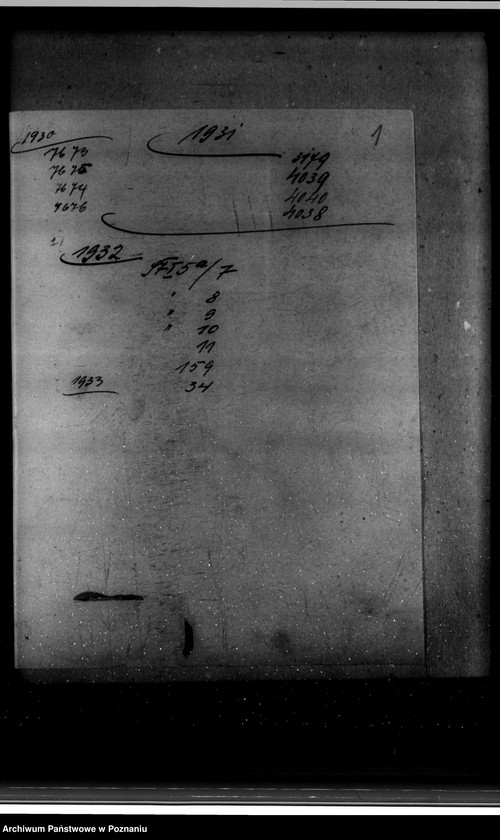 1
1930
7673
7675
7674
7676
1931
3179
4039
4040
4038
1932
5a/7
" 8
" 9
" 10
11
159
1933 34
Archiwum Państwowe w Poznaniu